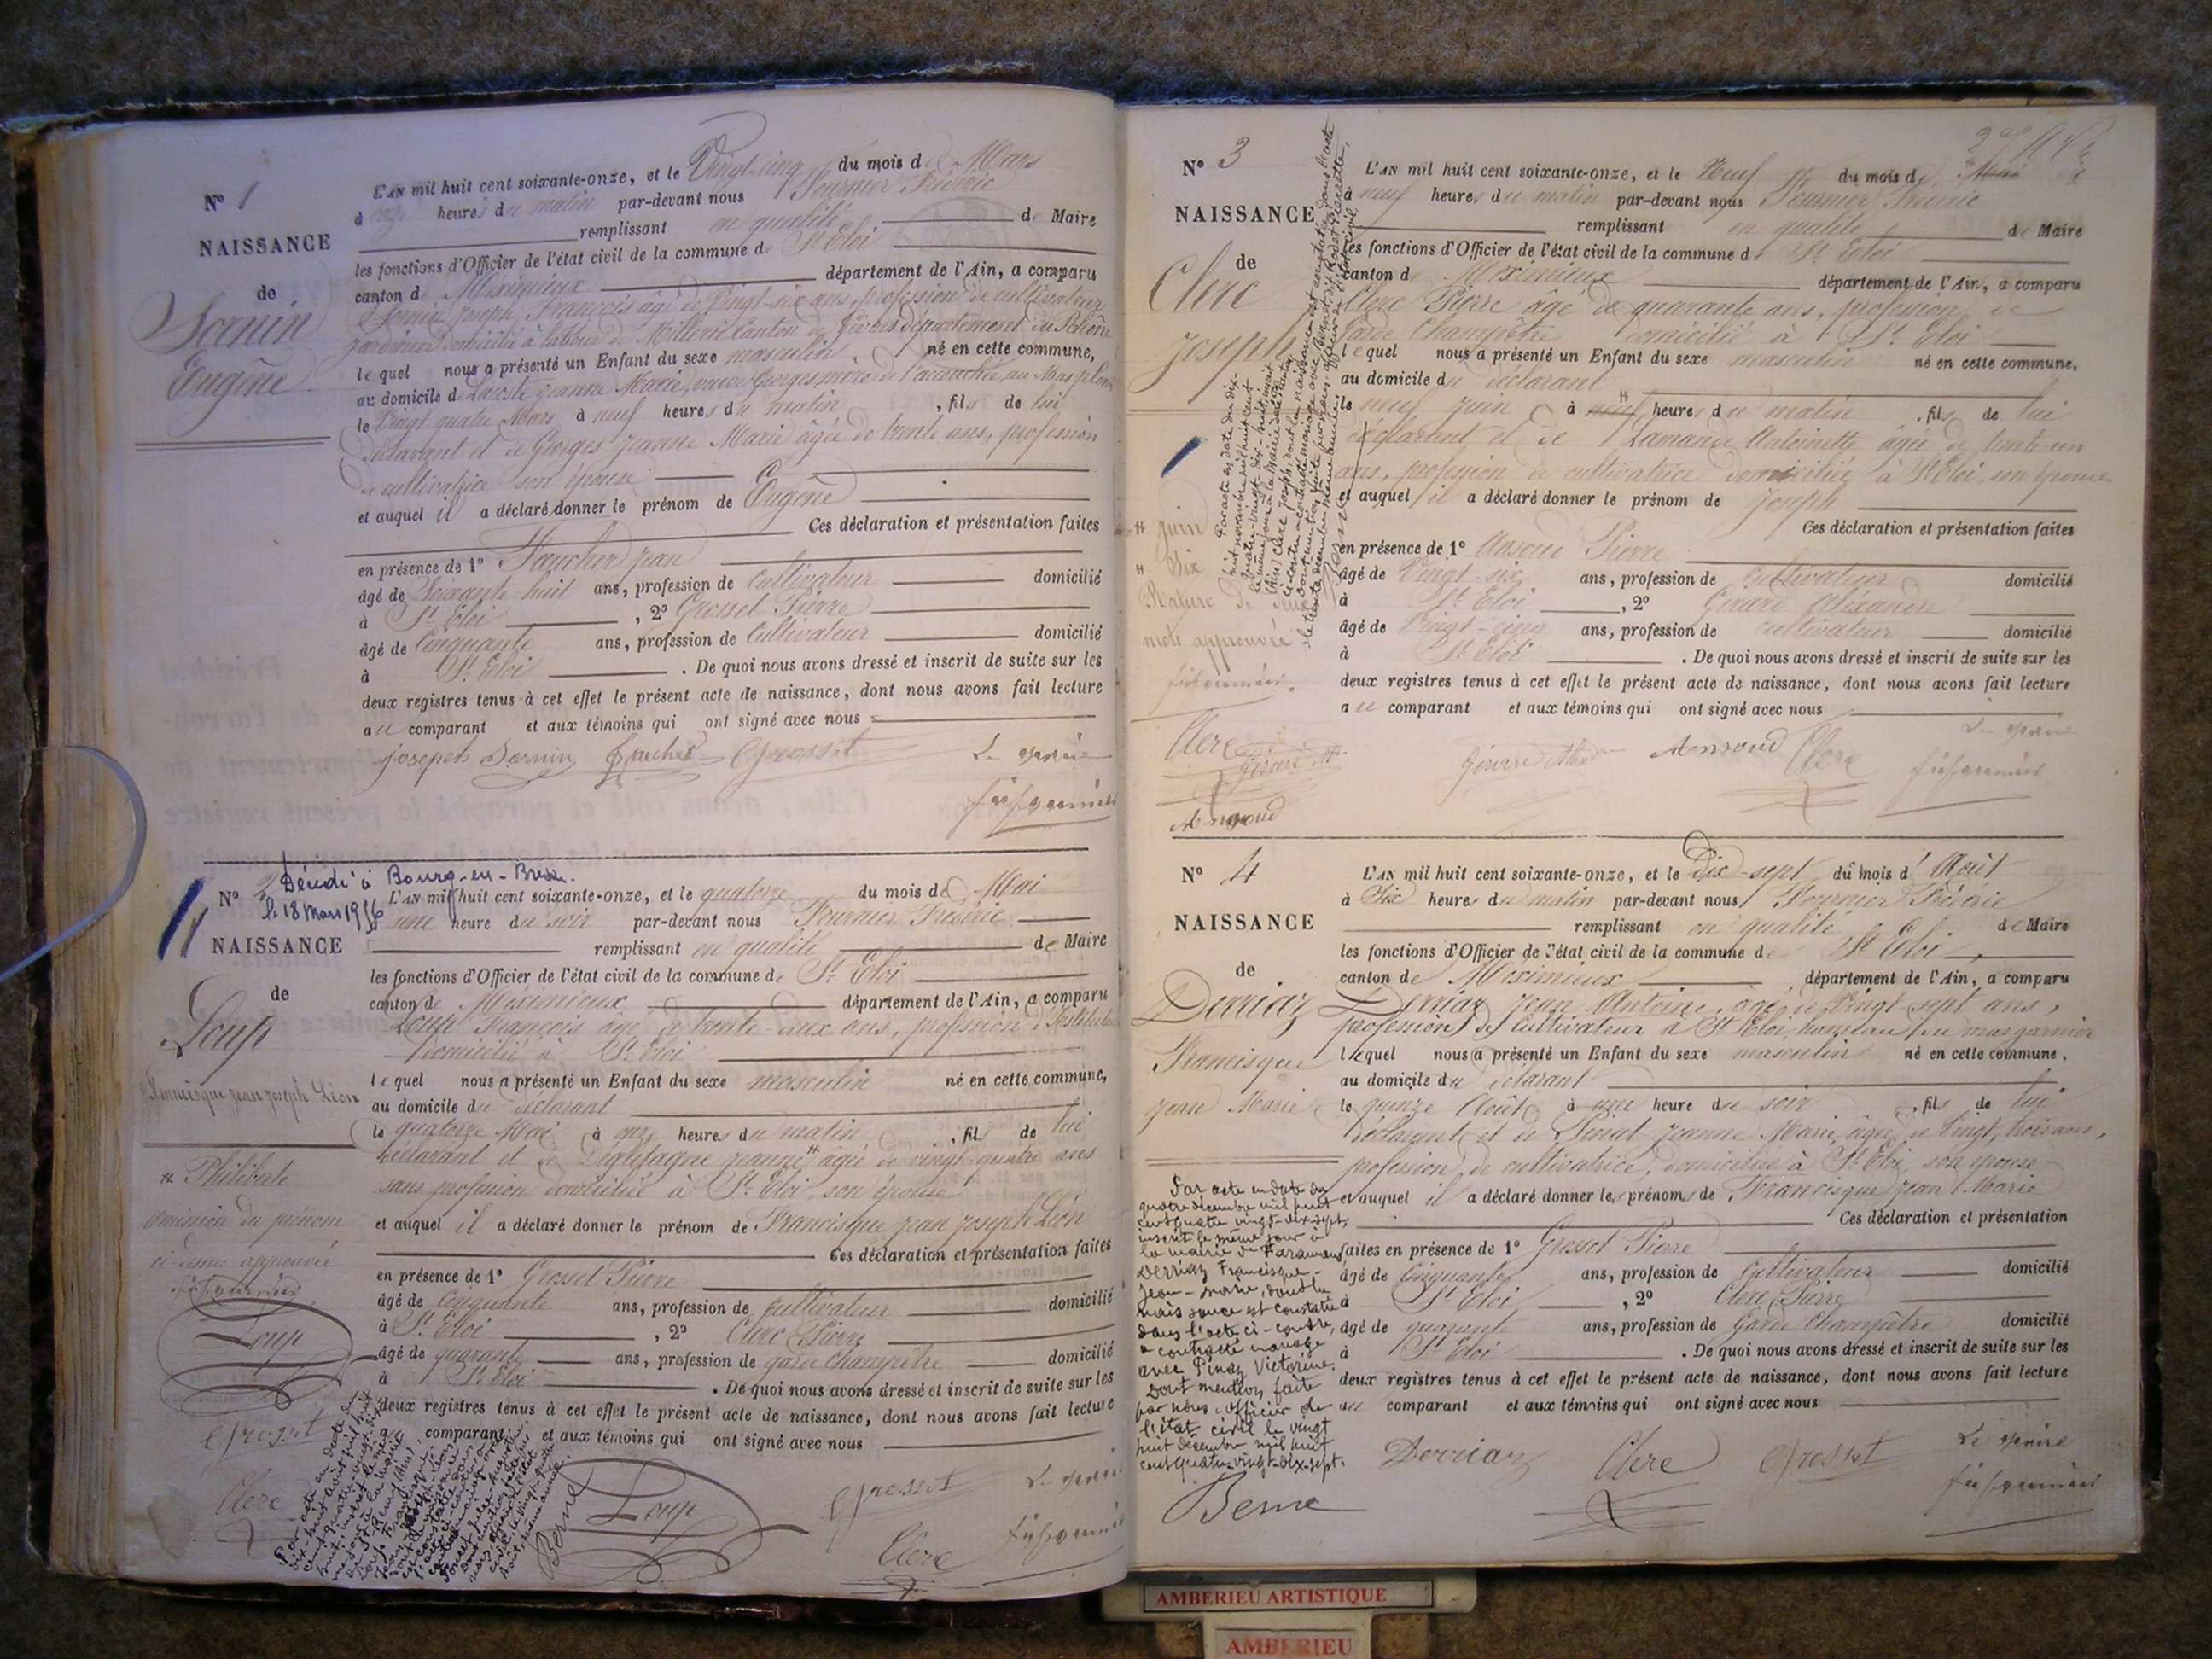 N° 1
NAISSANCE
de
Sornin
Eugène
L'AN mil huit cent soixante-onze, et le Vingt-cinq du mois de Mars
à onze heures du matin par-devant nous Fournier Fréderic
remplissant en qualité de Maire
les fonctions d'Officier de l'état civil de la commune de St Eloi
canton de Meximieux département de l'Ain, a comparu
Sornin Joseph, François âgé de Vingt-six ans, profession de cultivateur
domicilié à Millerie Canton de Givors département du Rhône
lequel nous a présenté un Enfant du sexe masculin né en cette commune,
au domicile de Jeanne Marie, veuve Georges, mère de l'accouchée, au Mas
le Vingt quatre Mars à neuf heures du matin, fils de lui
déclarant et de Georges Jeanne Marie âgée de trente ans, profession
de cultivatrice son épouse
et auquel il a déclaré donner le prénom de Eugène
Ces déclaration et présentation faites
en présence de 1° Faucher Jean
âgé de Soixante huit ans, profession de Cultivateur domicilié
à St Eloi, 2° Grosset Pierre
âgé de Cinquante ans, profession de Cultivateur domicilié
à St Eloi. De quoi nous avons dressé et inscrit de suite sur les
deux registres tenus à cet effet le présent acte de naissance, dont nous avons fait lecture
au comparant et aux témoins qui ont signé avec nous
Joseph Sornin Faucher Grosset Le maire
N° 2
Décédé à Bourg-en-Bresse
le 18 Mars 1956
NAISSANCE
de
Loup
Francisque Jean Joseph Léon
L'AN mil huit cent soixante-onze, et le quatorze du mois de Mai
à une heure du soir par-devant nous Fournier Fréderic
remplissant en qualité de Maire
les fonctions d'Officier de l'état civil de la commune de St Eloi
canton de Meximieux département de l'Ain, a comparu
Loup François âgé de trente-deux ans, profession d'Instituteur
domicilié à St Eloi
lequel nous a présenté un Enfant du sexe masculin né en cette commune,
au domicile du déclarant
le quatorze Mai à onze heures du matin, fils de lui
déclarant et de Jeanne # agée de vingt-quatre ans
sans profession domiciliée à St Eloi, son épouse
et auquel il a déclaré donner le prénom de Francisque Jean Joseph Léon
Ces déclaration et présentation faites
en présence de 1° Grosset Pierre
âgé de Cinquante ans, profession de Cultivateur domicilié
à St Eloi, 2° Clerc Pierre
âgé de quarante ans, profession de garde Champêtre domicilié
à St Eloi. De quoi nous avons dressé et inscrit de suite sur les
deux registres tenus à cet effet le présent acte de naissance, dont nous avons fait lecture
au comparant et aux témoins qui ont signé avec nous
# Philiberte
omission du prénom
ci-dessus approuvée
Loup
Grosset
Clerc
Berne
Loup Grosset Le maire
Clerc
N° 3
NAISSANCE
de
Clerc
Joseph
L'AN mil huit cent soixante-onze, et le Neuf du mois de # Mai
à neuf heures du matin par-devant nous Fournier Fréderic
remplissant en qualité de Maire
les fonctions d'Officier de l'état civil de la commune de St Eloi
canton de Meximieux département de l'Ain, a comparu
Clerc Pierre âgé de quarante ans, profession de
Garde Champêtre domicilié à St Eloi
lequel nous a présenté un Enfant du sexe masculin né en cette commune,
au domicile du déclarant
le neuf Juin à neuf heures du matin, fils de lui
déclarant et de Antoinette âgée de trente un
ans, profession de cultivatrice domiciliée à St Eloi, son épouse
et auquel il a déclaré donner le prénom de Joseph
Ces déclaration et présentation faites
en présence de 1° Pierre
âgé de Vingt-six ans, profession de Cultivateur domicilié
à St Eloi, 2° Girard Alexandre
âgé de Vingt-cinq ans, profession de cultivateur domicilié
à St Eloi. De quoi nous avons dressé et inscrit de suite sur les
deux registres tenus à cet effet le présent acte de naissance, dont nous avons fait lecture
au comparant et aux témoins qui ont signé avec nous
# Juin
# Six
Rature de deux
mots approuvée
Clerc
Girard
Clerc Le maire
N° 4
NAISSANCE
de
Derriaz
Francisque
Jean Marie
L'AN mil huit cent soixante-onze, et le Dix-sept du mois d'Août
à Six heures du matin par-devant nous Fournier Fréderic
remplissant en qualité de Maire
les fonctions d'Officier de l'état civil de la commune de St Eloi
canton de Meximieux département de l'Ain, a comparu
Derriaz Jean Antoine, âgé de Vingt-sept ans,
profession de Cultivateur à St Eloi, hameau du mas garnier
lequel nous a présenté un Enfant du sexe masculin né en cette commune,
au domicile du déclarant
le quinze Août à une heure du soir, fils de lui
déclarant et de Jeanne Marie, âgée de Vingt, trois ans,
profession de cultivatrice, domiciliée à St Eloi, son épouse
et auquel il a déclaré donner les prénoms de Francisque Jean Marie
Ces déclaration et présentation
faites en présence de 1° Grosset Pierre
âgé de Cinquante ans, profession de Cultivateur domicilié
à St Eloi, 2° Clerc Pierre
âgé de quarante ans, profession de Garde Champêtre domicilié
à St Eloi. De quoi nous avons dressé et inscrit de suite sur les
deux registres tenus à cet effet le présent acte de naissance, dont nous avons fait lecture
au comparant et aux témoins qui ont signé avec nous
Par acte en date du
quatre décembre mil huit
cent quatre vingt-dix-sept,
inscrit le même jour à
la mairie de Faramans
Derriaz Francisque-
Jean-Marie, dont la
naissance est constatée
dans l'acte ci-contre,
a contracté mariage
avec Pinaz Victorine.
Dont mention faite
par nous officier de
l'état civil le vingt
huit décembre mil huit
cent quatre-vingt-dix-sept.
Berne
Derriaz Clerc Grosset Le maire
AMBERIEU ARTISTIQUE
AMBERIEU